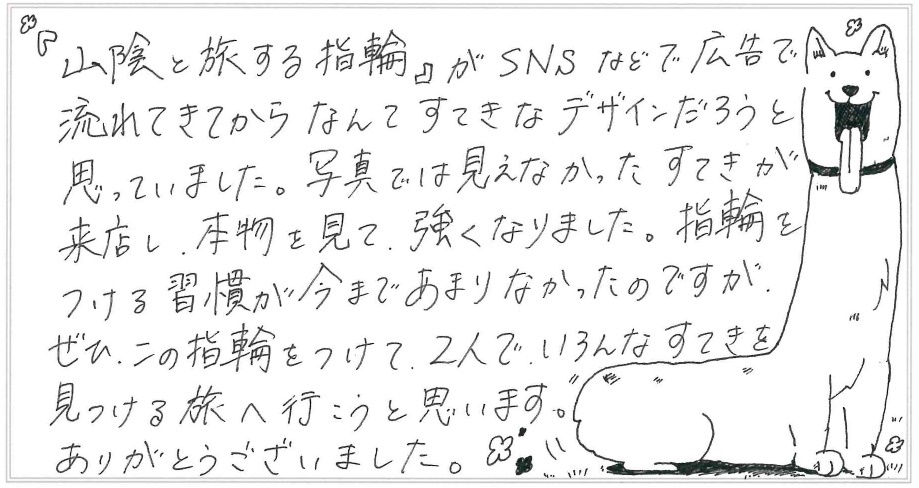 『山陰と旅する指輪』がSNSなどで広告で
流れてきてからなんてすてきなデザインだろうと
思っていました。写真では見えなかったすてきが
来店し、本物を見て、強くなりました。指輪を
つける習慣が今まであまりなかったのですが、
ぜひ、この指輪をつけて、2人で、いろんなすてきを
見つける旅へ行こうと思います。
ありがとうございました。